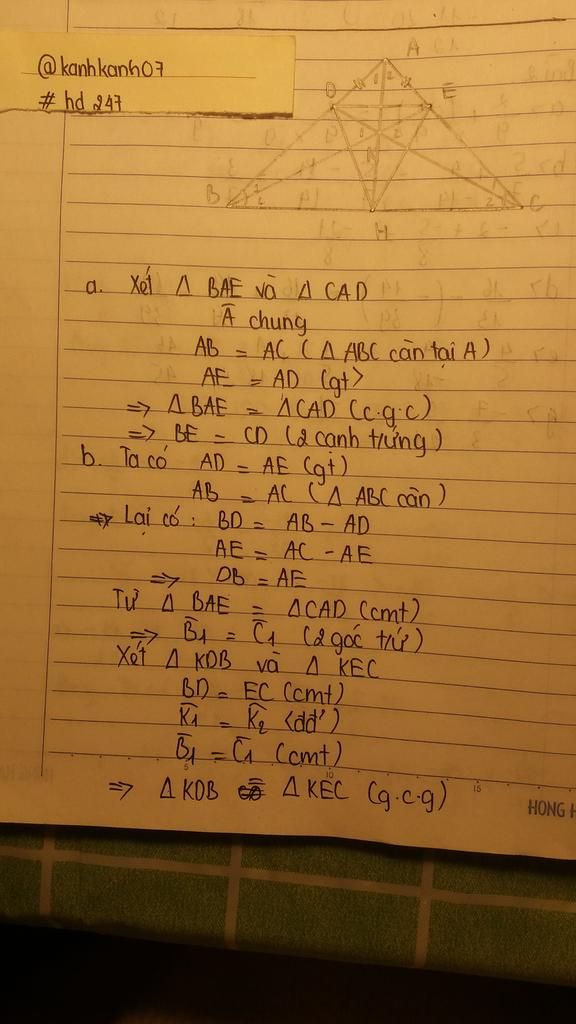 @kanhkanh07
# hd 247
A
D
E
K
B
H
C
a. Xét Δ BAE và Δ CAD
Â chung
AB = AC (Δ ABC cân tại A)
AE = AD (gt>
=> Δ BAE = Δ CAD (c.g.c)
=> BE = CD (2 cạnh t/ứng)
b. Ta có AD = AE (gt)
AB = AC (Δ ABC cân)
=> Lại có : BD = AB - AD
AE = AC - AE
=> DB = AE
Từ Δ BAE = Δ CAD (cmt)
=> B̂1 = Ĉ1 (2 góc t/ứ)
Xét Δ KDB và Δ KEC
BD = EC (cmt)
K̂1 = K̂2 <đđ')
B̂1 = Ĉ1 (cmt)
=> Δ KDB = Δ KEC (g.c.g)
5 10 15
HONG H